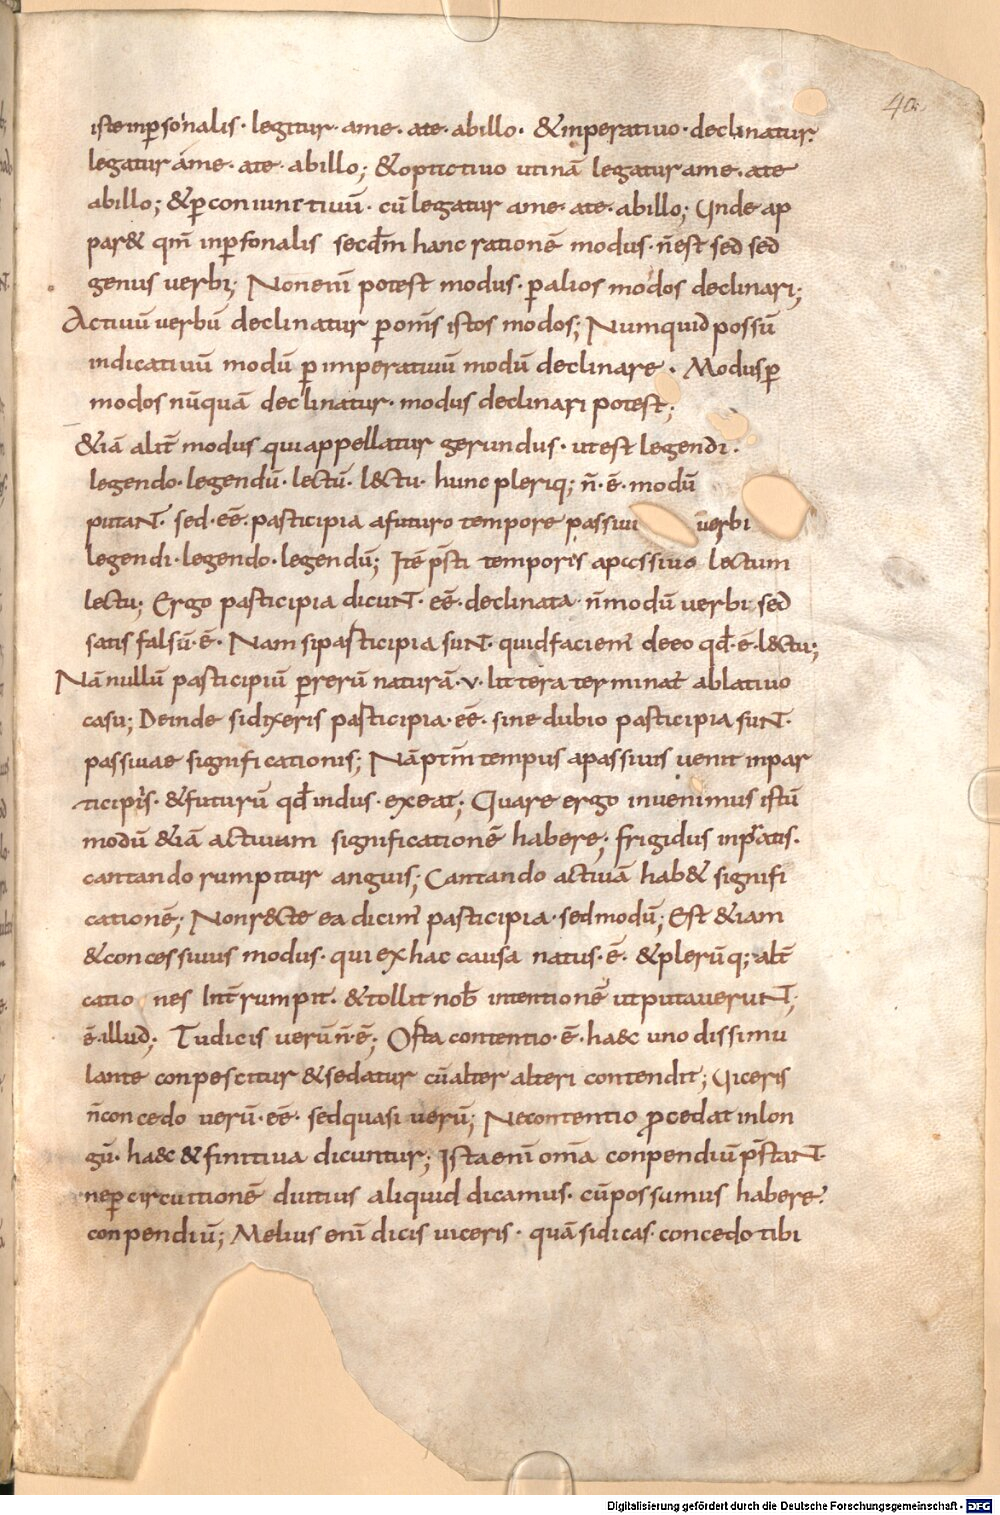 40.
iste inꝑsonalis· legitur· ame· ate· ab illo· & inperatiuo· declinatur·
legatur áme· ate· ab illo; & optatiuo utinā legatur ame· ate
ab illo; & ꝑ coniunctiuū· cū legatur ame· ate· ab illo; Unde ap
par& qm̄ inꝑsonalis secdm̄ hanc rationē modus· n̄ est sed sed
genus uerbi; Non eni potest modus· ꝑ alios modos declinari;
Actiuū uerbū declinatur ꝑ om̄s istos modos; Numquid possū
indicatiuū modū ꝑ imperatiuū modū declinare· Modus ꝑ
modos nūquā declinatur· modus declinari potest;
&iā alit̄ modus qui appellatur gerundus· ut est legendi·
legendo· legendū· lectū· l&ctu· hunc pleriq; n̄· ē· modū
putant· sed· eē· pasticipia a futuro tempore passiui uerbi
legendi· legendo· legendū; Itē p̄sti temporis a passiuo lectum
lectu; Ergo pasticipia dicunt· eē· declinata· n̄ modū uerbi sed
satis falsū· ē· Nam si pasticipia sunt· quid faciem' de eo qd̄· ē· l&ctu;
Nā nullū pasticipiū ꝑ rerū naturā· v· littera terminat' ablatiuo
casu; Deinde si dixeris pasticipia· eē· sine dubio pasticipia sunt·
passiuae significationis; Nā ptm̄ tempus a passiuis uenit in par
ticipiis· & futurū qd̄ in dus· exeat; Quare ergo inuenimus istū
modū &iā actiuam significationē habere; frigidus in pratis·
cantando rumpitur anguis; Cantando actiuā hab& signifi
cationē; Non r&cte ea dicim' pasticipia· sed modū; Est &iam
& concessiuus modus· qui ex hac causa natus· ē· & plerūq; alt̄
catio nes int̄rumpit· & tollit nob̄ intentionē ut putauerunt;
ē· illud; Tu dicis uerū n̄· ē; Orta contentio· ē· haec uno dissimu
lante conpescitur & sedatur cū alter alteri contendit; Uiceris
n̄ concedo uerū· eē· sed quasi uerū; Ne contentio ꝓcedat in lon
gū· haec & finitiua dicuntur; Ista eni om̄a conpendiū p̄stant
ne ꝑ circuitionē diutius aliquid dicamus· cū possumus habere·
conpendiū; Melius eni dicis uiceris· quā si dicas· concedo tibi
Digitalisierung gefördert durch die Deutsche Forschungsgemeinschaft - DFG